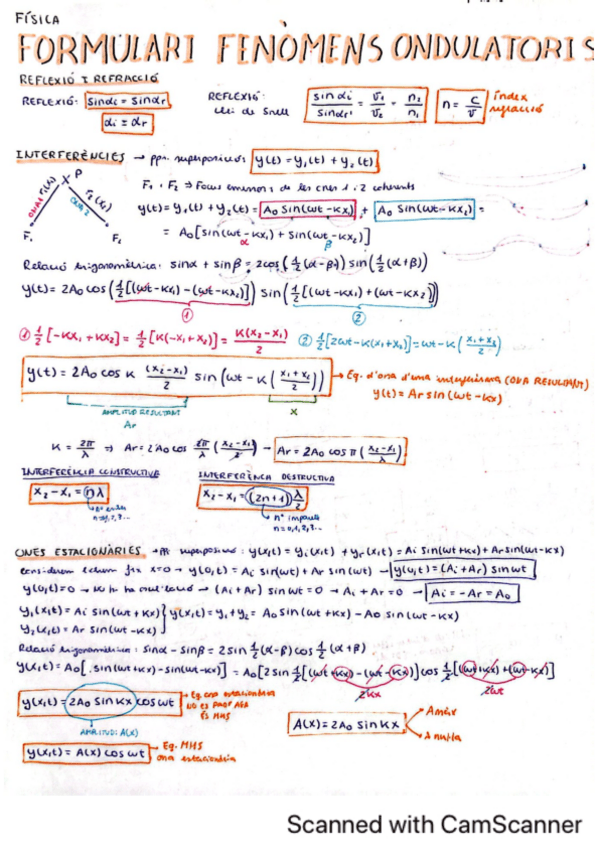 FÍSICA
FORMULARI FENÒMENS ONDULATORIS
REFLEXIÓ I REFRACCIÓ
REFLEXIÓ: sin αi = sin αr
αi = αr
REFLEXIÓ:
Llei de Snell
sin αi / sin αr' = v1 / v2 = n2 / n1
n = c / v índex refracció
INTERFERÈNCIES → ppi superposició: y(t) = y1(t) + y2(t)
F1 i F2 ⇒ Focus emissors de les ones 1 i 2 coherents
P
ONA 1 r1(x1)
ONA 2 r2(x2)
F1
F2
y(t) = y1(t) + y2(t) = A0 sin(ωt - kx1) + A0 sin(ωt - kx2) =
= A0[sin(ωt - kx1) + sin(ωt - kx2)]
α β
Relació trigonomètrica: sin α + sin β = 2cos(1/2(α-β)) sin(1/2(α+β))
y(t) = 2A0 cos(1/2[(ωt - kx1) - (ωt - kx2)]) sin(1/2[(ωt - kx1) + (ωt - kx2)])
① ②
① 1/2[-kx1 + kx2] = 1/2[k(-x1 + x2)] = k(x2 - x1)/2 ② 1/2[2ωt - k(x1 + x2)] = ωt - k(x1 + x2 / 2)
y(t) = 2A0 cos k (x2 - x1)/2 sin(ωt - k(x1 + x2 / 2)) → Eq. d'ona d'una interferència (ONA RESULTANT)
y(t) = Ar sin(ωt - kx)
AMPLITUD RESULTANT
Ar
x
k = 2π/λ ⇒ Ar = 2A0 cos 2π/λ (x2 - x1 / 2) → Ar = 2A0 cos π (x2 - x1 / λ)
INTERFERÈNCIA CONSTRUCTIVA
x2 - x1 = nλ
n=1,2,3...
INTERFERÈNCIA DESTRUCTIVA
x2 - x1 = (2n+1) λ/2
nº imparells
n=0,1,2,3...
ONES ESTACIONÀRIES → ppi superposició: y(x,t) = yi(x,t) + yr(x,t) = Ai sin(ωt + kx) + Ar sin(ωt - kx)
Considerem extrem fix x=0 → y(0,t) = Ai sin(ωt) + Ar sin(ωt) → y(0,t) = (Ai + Ar) sin ωt
y(0,t) = 0 → no hi ha oscil·lació → (Ai + Ar) sin ωt = 0 → Ai + Ar = 0 → Ai = -Ar = A0
y1(x,t) = Ai sin(ωt + kx) } y(x,t) = y1 + y2 = A0 sin(ωt + kx) - A0 sin(ωt - kx)
y2(x,t) = Ar sin(ωt - kx)
Relació trigonomètrica: sin α - sin β = 2 sin 1/2(α-β) cos 1/2(α+β)
y(x,t) = A0[sin(ωt + kx) - sin(ωt - kx)] = A0[2 sin 1/2[(ωt + kx) - (ωt - kx)]] cos 1/2[(ωt + kx) + (ωt - kx)]
2kx 2ωt
y(x,t) = 2A0 sin kx cos ωt → Eq. ona estacionària
NO ES PROPAGA
ÉS MHS
AMPLITUD: A(x)
A(x) = 2A0 sin kx
A màx
A nul·la
y(x,t) = A(x) cos ωt → Eq. MHS
ona estacionària
Scanned with CamScanner